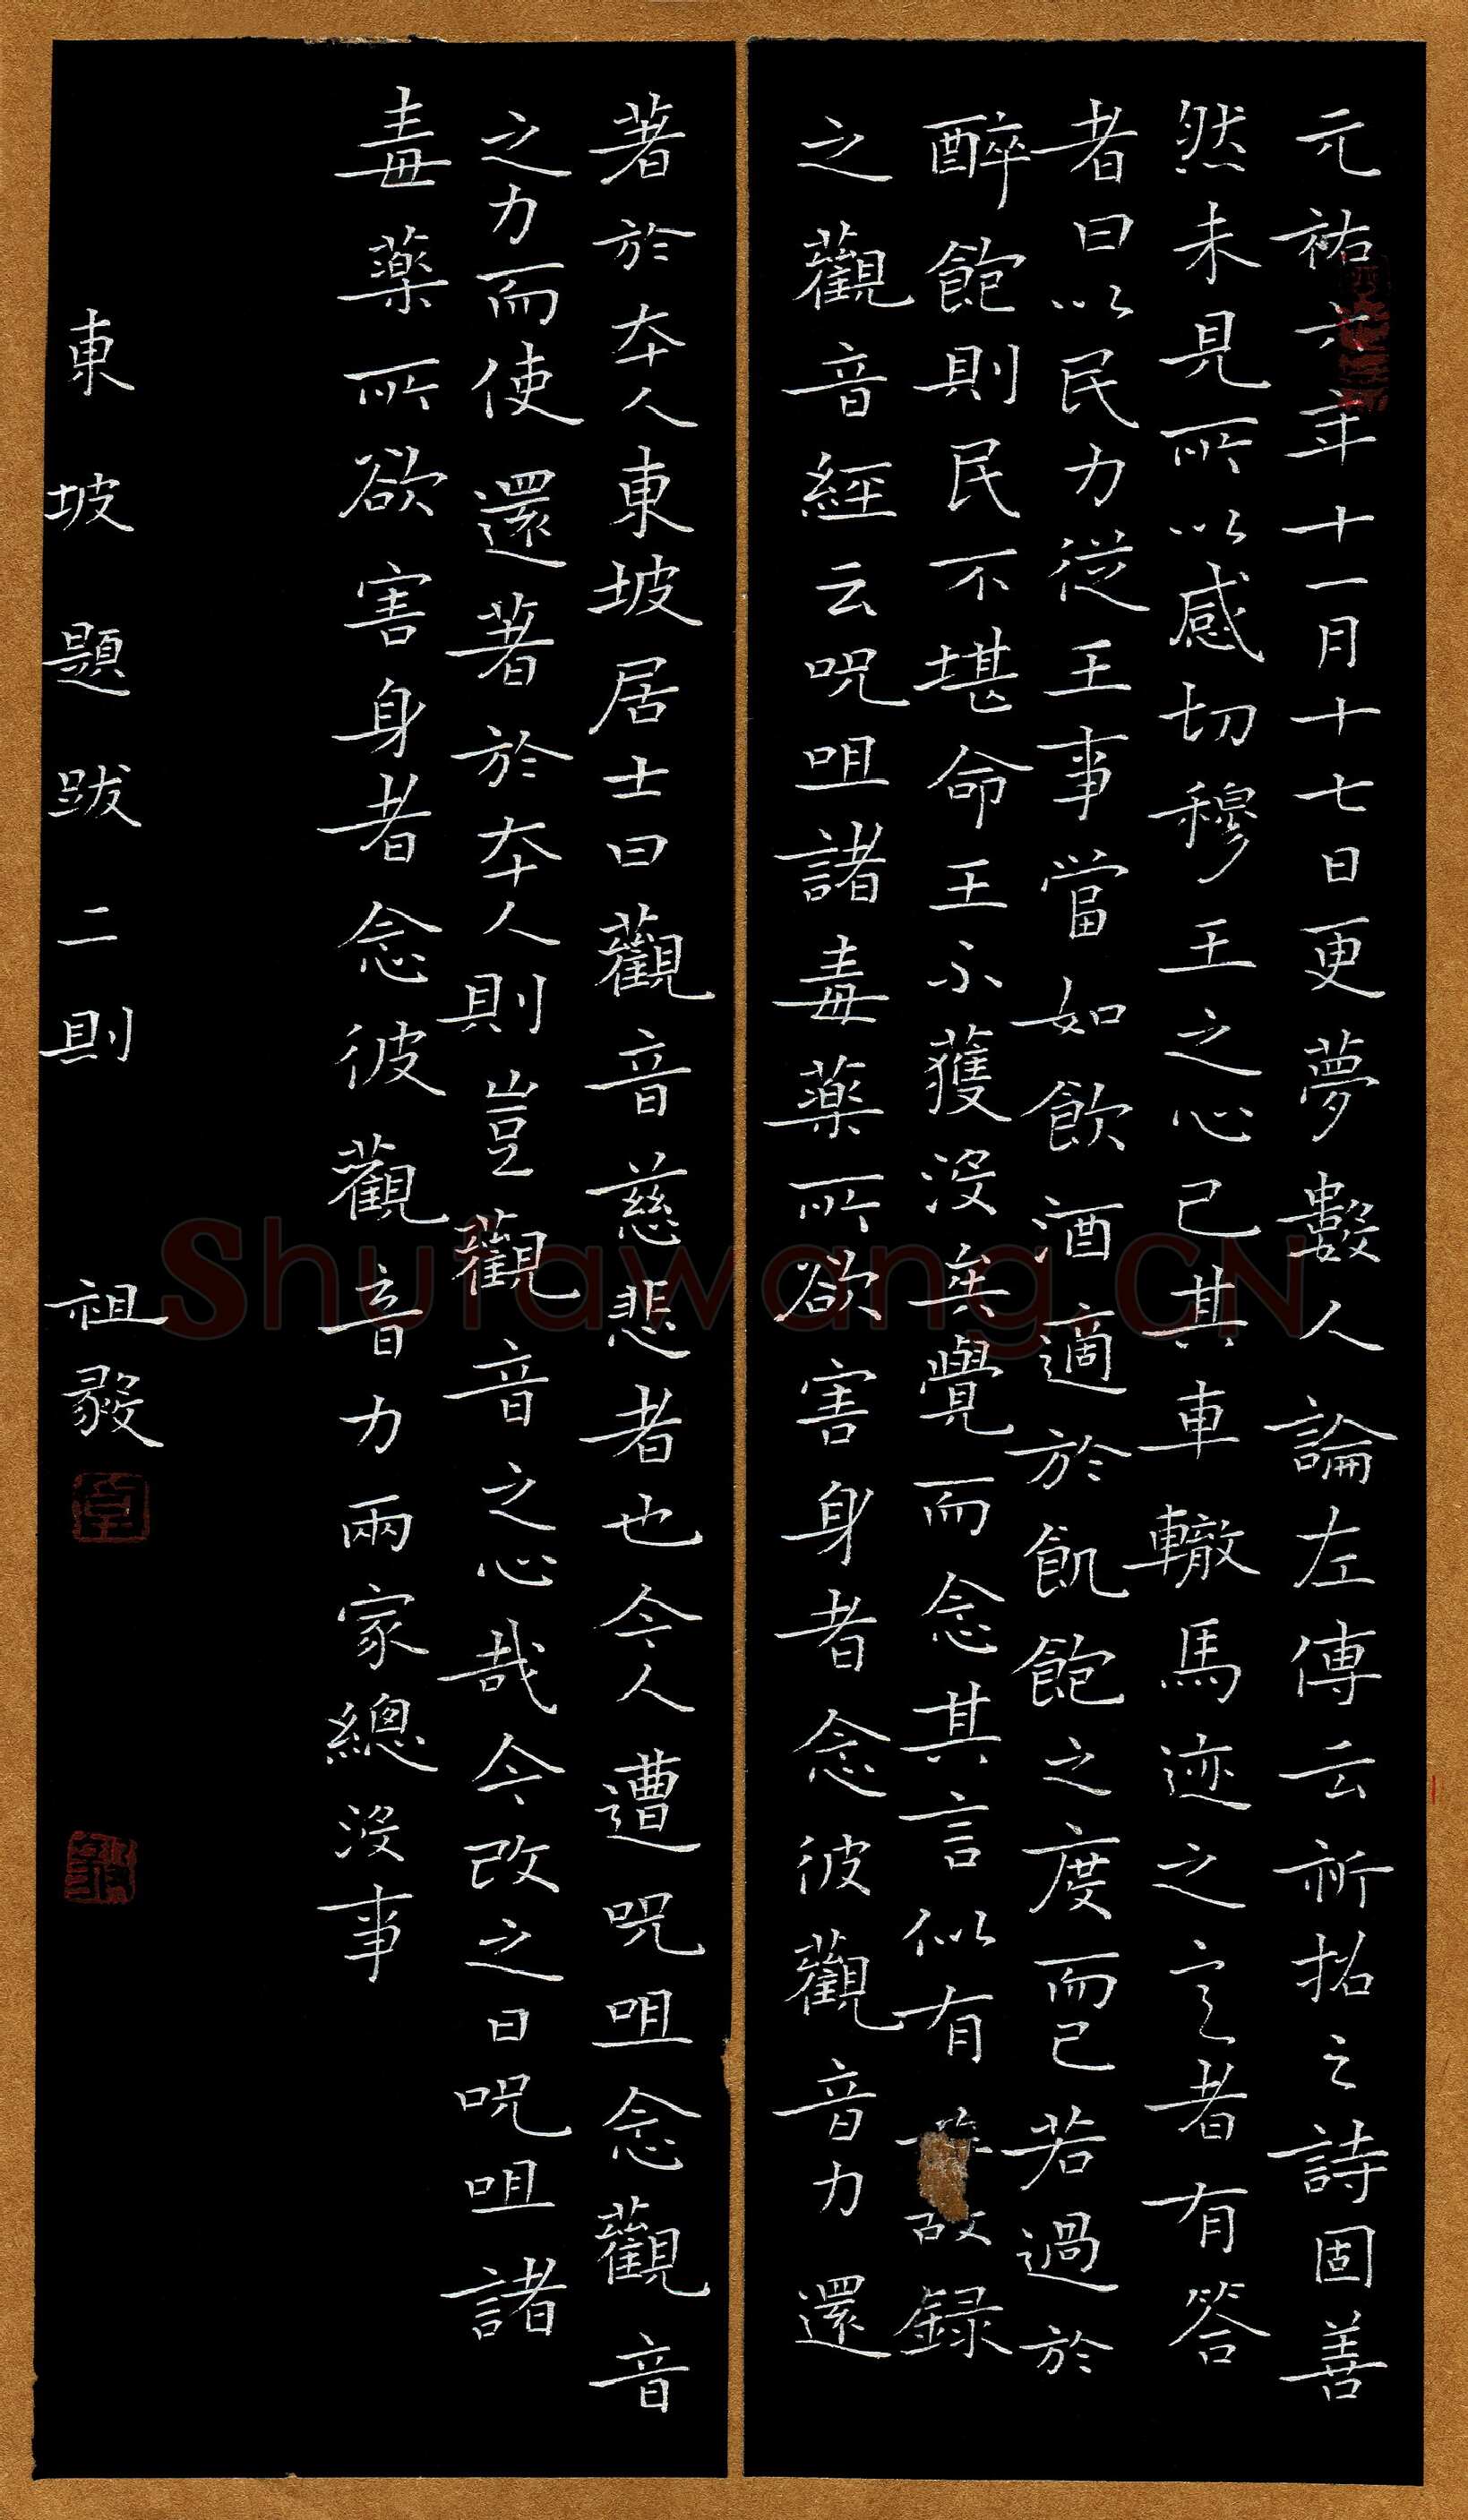 元祐六年十一月十七日更夢數人論左傳云祈招之詩固善
然未見所以感切穆王之心已其車轍馬迹之言者有答
者曰以民力從王事當如飲酒適於飢飽之度而已若過於
醉飽則民不堪命王不獲没矣覺而念其言似有故録
之觀音經云呪咀諸毒藥所欲害身者念彼觀音力還
著於本人東坡居士曰觀音慈悲者也今人遭呪咀念觀音
之力而使還著於本人則豈觀音之心哉今改之曰呪咀諸
毒藥所欲害身者念彼觀音力兩家總没事
東坡題跋二則 祖毅
Shufawang.CN